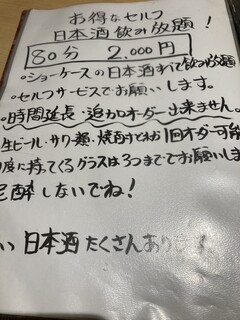 お得なセルフ
日本酒飲み放題!
80分 2.000円
・ショーケースの日本酒すべて飲み放題
・セルフサービスでお願いします。
・時間延長・追加オーダー出来ません。
生ビール・サワー類・焼酎 1回オーダー可能
度に持ってくるグラスは3つまででお願いしま
泥酔しないでね!
い 日本酒たくさんあります